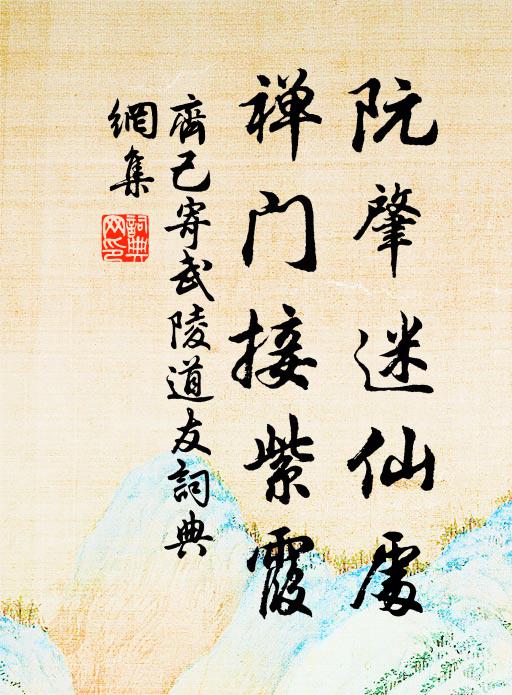 阮肇迷仙處
禅门接紫霞
齊己寄武陵道友詞典
網集
詞典
网印